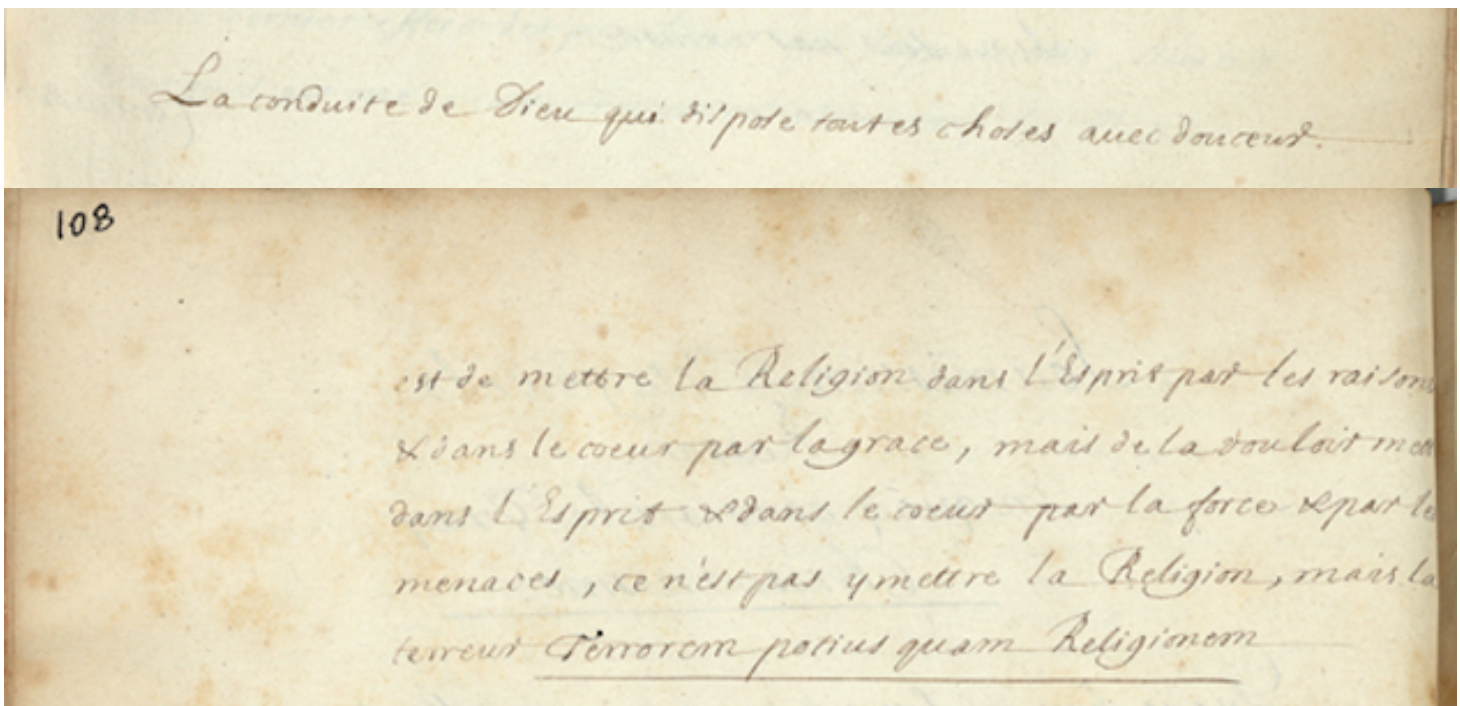 La conduite de Dieu qui dispose toutes choses avec douceur.
108
est de mettre la Religion dans l'Esprit par les raisons
& dans le coeur par la grace, mais de la vouloir mett
dans l'Esprit & dans le coeur par la force & par le
menaces, ce n'est pas y mettre la Religion, mais la
terreur Terrorem potius quam Religionem